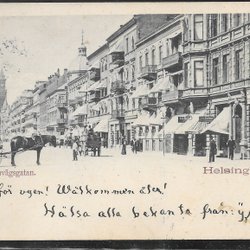 nvägsgatan. Helsing
för vgen! Wälkommen åter!
Hälsa alla bekanta från